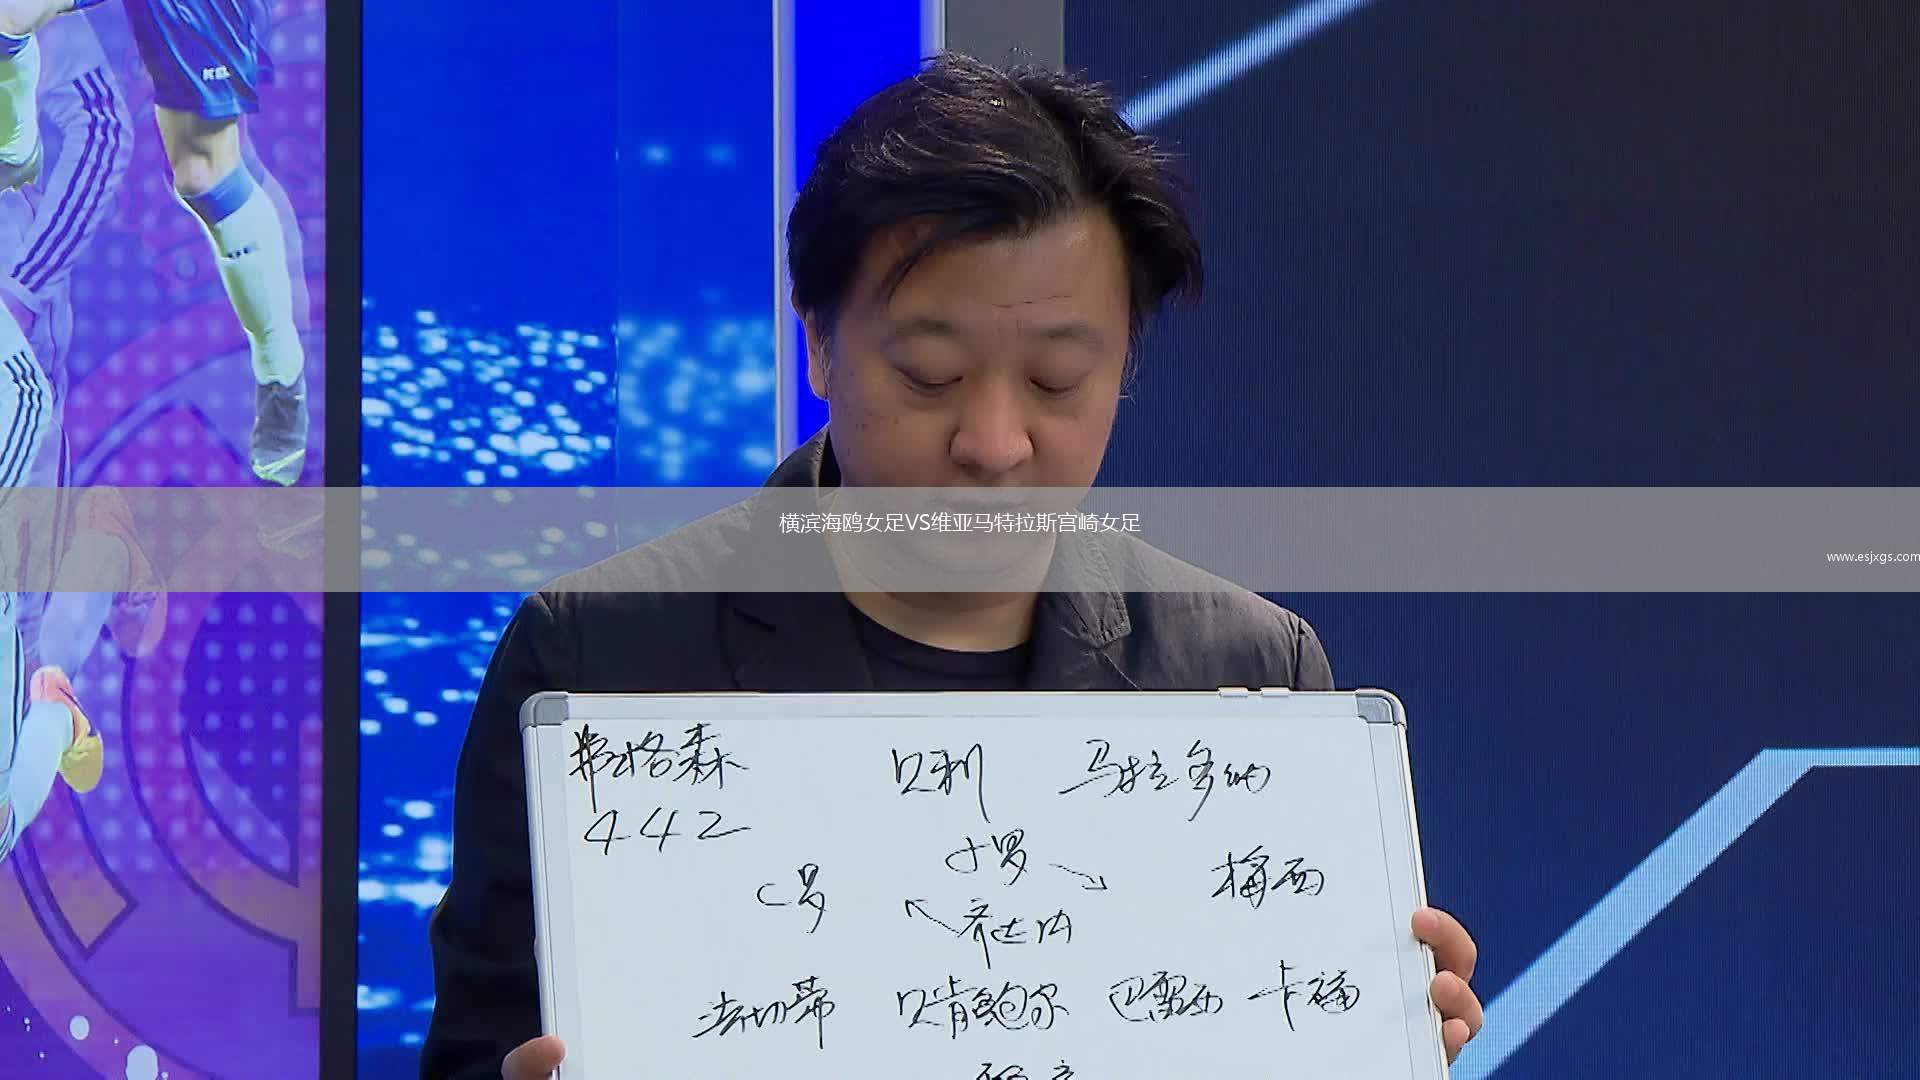 横滨海鸥女足VS维亚马特拉斯宫崎女足
www.esjxgs.com
弗格森 贝利 马拉多纳
442
C罗 小罗 梅西
齐达内
法切蒂 贝肯鲍尔 巴雷西 卡福